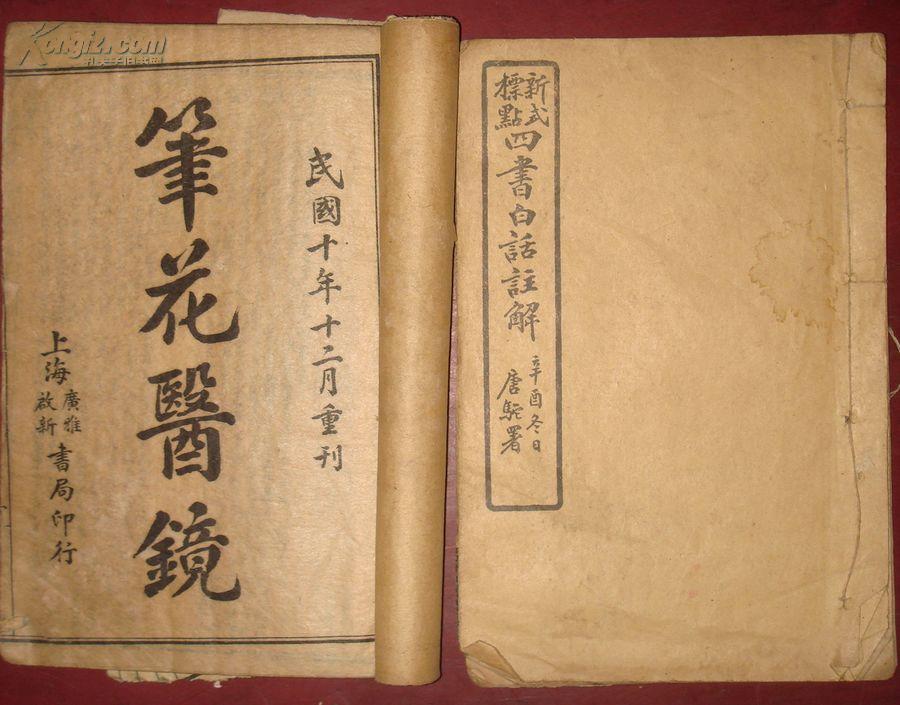 Kongfz.com
孔夫子旧书网
民國十年十二月重刊
筆花醫鏡
上海廣雅啟新書局印行
新式標點四書白話註解
辛酉冬日
唐駝署